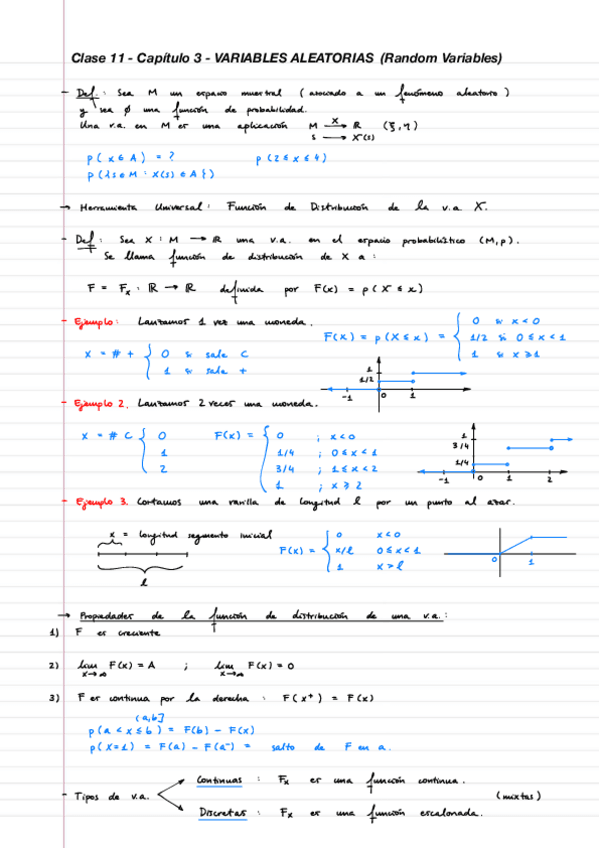 Clase 11 - Capítulo 3 - VARIABLES ALEATORIAS (Random Variables)
- Def.: Sea M un espacio muestral (asociado a un fenómeno aleatorio)
y sea ϕ una función de probabilidad.
Una v.a. en M es una aplicación M —X→ ℝ (ξ, η)
s → X(s)
p(x∈A) = ? p(2≤x≤4)
p({s∈M : X(s)∈A})
→ Herramienta Universal: Función de Distribución de la v.a. X.
- Def: Sea X : M → ℝ una v.a. en el espacio probabilístico (M,p).
Se llama función de distribución de X a:
F = Fx : ℝ → ℝ definida por F(x) = p(X≤x)
- Ejemplo: Lanzamos 1 vez una moneda.
F(x) = p(X≤x) = { 0 si x<0
1/2 si 0≤x<1
1 si x≥1
x = # + { 0 si sale C
1 si sale +
1
1/2
-1 0 1
- Ejemplo 2. Lanzamos 2 veces una moneda.
x = # C { 0
1
2
F(x) = { 0 ; x<0
1/4 ; 0≤x<1
3/4 ; 1≤x<2
1 ; x≥2
1
3/4
1/4
-1 0 1 2
- Ejemplo 3. Cortamos una varilla de longitud l por un punto al azar.
x = longitud segmento inicial
l
F(x) = { 0 x<0
x/l 0≤x<1
1 x>l
0 1
→ Propiedades de la función de distribución de una v.a.:
1) F es creciente
2) lim x→∞ F(x) = A ; lim x→∞ F(x) = 0
3) F es continua por la derecha : F(x⁺) = F(x)
(a,b]
p(a<x≤b) = F(b) - F(x)
p(X=1) = F(a) - F(a⁻) = salto de F en a.
- Tipos de v.a.
Continuas : Fx es una función continua.
(mixtas)
Discretas : Fx es una función escalonada.